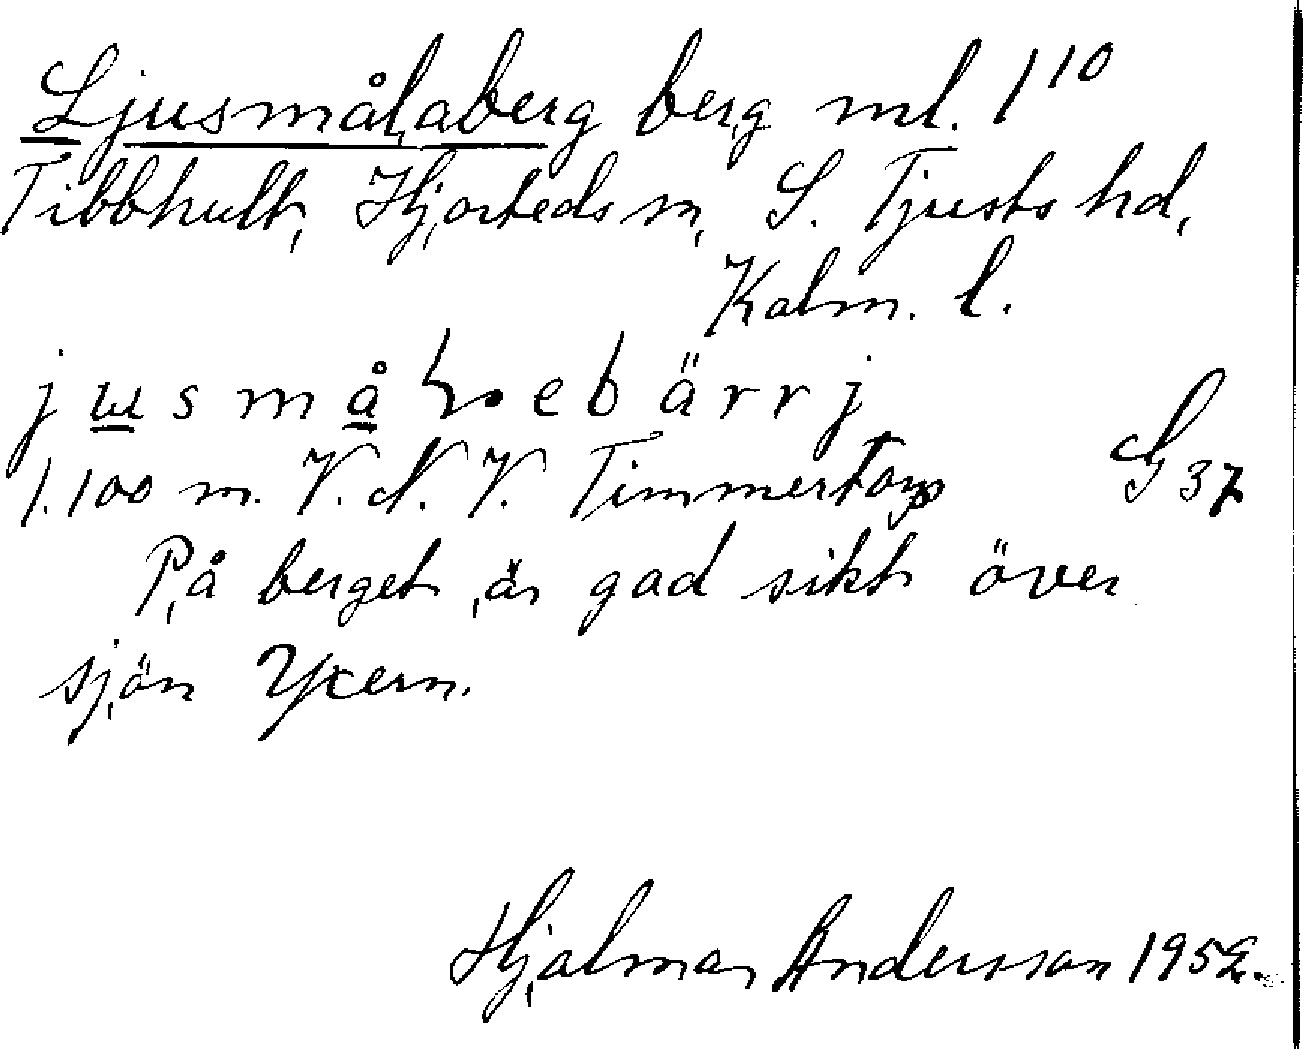 Ljusmålaberg berg ml. 1¹⁰
Tibbhult, Hjorteds sn, S. Tjusts hd,
Kalm. l.
j u s m å l e b ä r r j
1.100 m. V. N. V. Timmertorp G 37
På berget är god sikt över
sjön Yxern.
Hjalmar Andersson 1952.